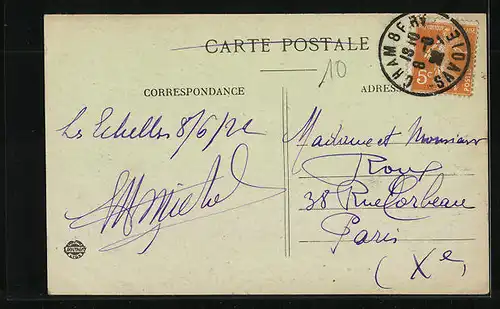 CARTE POSTALE
10
CORRESPONDANCE
ADRESSE
CHAMBERY
SAVOIE
18 10
8
5c
Les Echelles 8/6/22
Michel
Madame et Monsieur
Roux
38 Rue Corbeau
Paris
(Xe)